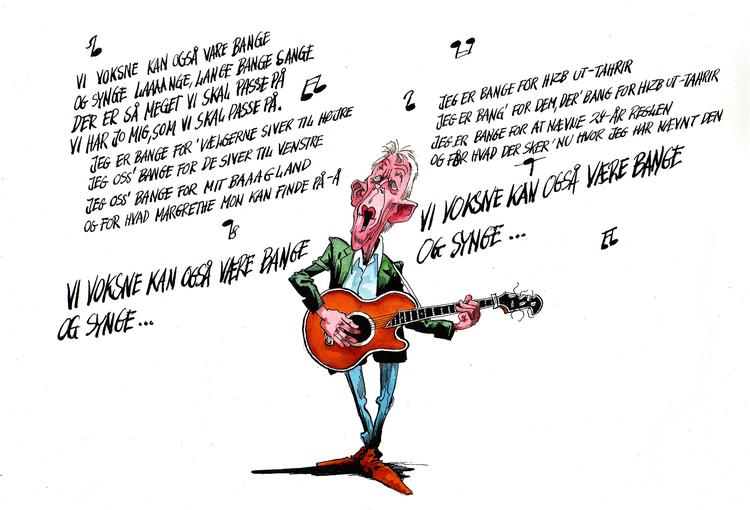 VI VOKSNE KAN OGSÅ VARE BANGE
OG SYNGE LAAAANGE, LANGE BANGE SANGE
DER ER SÅ MEGET VI SKAL PASSE PÅ
VI HAR JO MIG, SOM VI SKAL PASSE PÅ.
JEG ER BANGE FOR' VÆLGERNE SIVER TIL HØJRE
JEG OSS' BANGE FOR DE SIVER TIL VENSTRE
JEG OSS' BANGE FOR MIT BAAAG-LAND
OG FOR HVAD MARGRETHE MON KAN FINDE PÅ-Å
VI VOKSNE KAN OGSÅ VÆRE BANGE
OG SYNGE...
JEG ER BANGE FOR HIZB UT-TAHRIR
JEG ER BANG' FOR DEM, DER' BANG FOR HIZB UT-TAHRIR
JEG ER BANGE FOR AT NÆVNE 24-ÅR REGLEN
OG FOR HVAD DER SKER' NU HVOR JEG HAR NÆVNT DEN
VI VOKSNE KAN OGSÅ VÆRE BANGE
OG SYNGE...